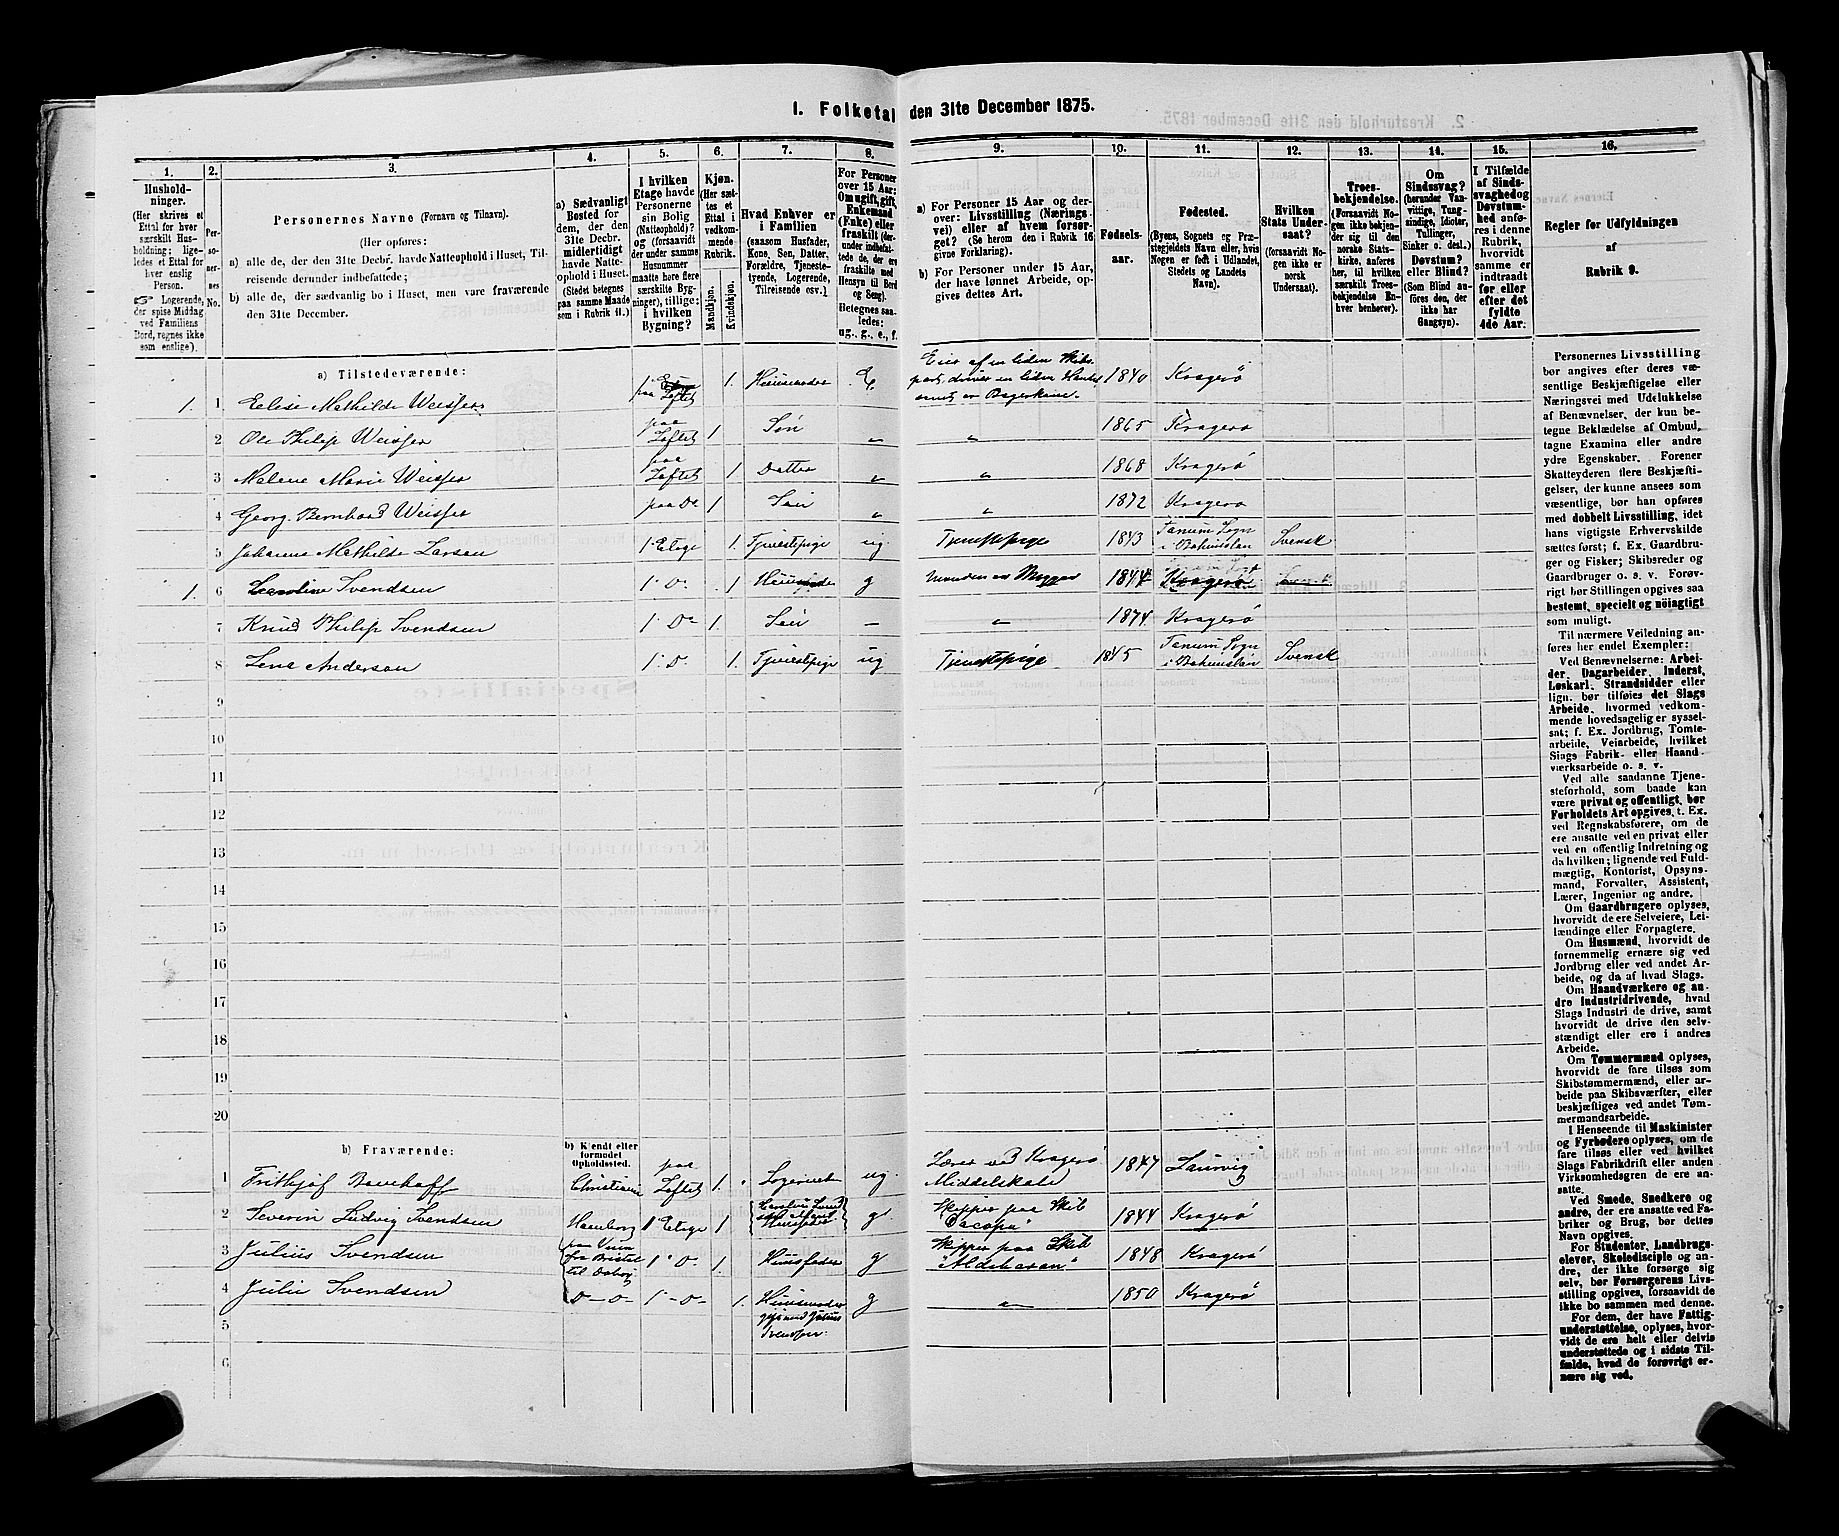 1. Folketal den 31te December 1875.
1.
Hushold-
ninger.
(Her skrives et
Ettal for hver
særskilt Hus-
holdning; lige-
ledes et Ettal for
hver enslig
Person.
Logerende,
der spise Middag
ved Familiens
Bord, regnes ikke
som enslige).
2.
Per-
so-
ner-
nes
No.
3.
Personernes Navne (Fornavn og Tilnavn).
(Her opføres:
a) alle de, der den 31te Decbr. havde Natteophold i Huset, Til-
reisende derunder indbefattede;
b) alle de, der sædvanlig bo i Huset, men vare fraværende
den 31te December.
4.
a) Sædvanligt
Bosted for
dem, der den
31te Decbr.
midlertidigt
havde Natte-
ophold i Huset.
(Stedet betegnes
paa samme Maade
som i Rubrik 11.)
5.
I hvilken
Etage havde
Personerne
sin Bolig
(Natteophold)?
og (forsaavidt
der under samme
Husnummer
maatte høre flere
særskilte Byg-
ninger), tillige:
i hvilken
Bygning?
6.
Kjøn.
(Her sæt-
tes et
Ettal i
vedkom-
mende
Rubrik.
Mandkjøn.
Kvindekjøn.
7.
Hvad Enhver er
i Familien
(saasom Husfader,
Kone, Søn, Datter,
Forældre, Tjeneste-
tyende, Logerende,
Tilreisende osv.)
8.
For Personer
over 15 Aar:
Om ugift, gift,
Enkemand
(Enke) eller
fraskilt (der-
under indbefat-
tede de, der ere
fraskilte med
Hensyn til Bord
og Seng).
Betegnes saa-
ledes:
ug., g., e., f.
9.
a) For Personer 15 Aar og der-
over: Livsstilling (Nærings-
vei) eller af hvem forsør-
get? (Se herom den i Rubrik 16
givne Forklaring).
b) For Personer under 15 Aar,
der have lønnet Arbeide, op-
gives dettes Art.
10.
Fødsels-
aar.
11.
Fødested.
(Byens, Sognets og Præ-
stegjeldets Navn eller, hvis
Nogen er født i Udlandet,
Stedets og Landets
Navn).
12.
Hvilken
Stats Under-
saat?
(forsaavidt No-
gen ikke er
norsk
Undersaat).
13.
Troes-
bekjendelse.
(Forsaavidt No-
gen ikke bekjen-
der sig til den
norske Stats-
kirke, anføres
her, til hvilken
særskilt Troes-
bekjendelse En-
hver henhører).
14.
Om
Sindssvag?
(herunder Van-
vittige, Tung-
sindige, Idioter,
Tullinger,
Sinker o. desl.)
Døvstum?
eller Blind?
(Som Blind an-
føres den, der
ikke har
Gangsyn).
15.
I Tilfælde
af Sinds-
svaghed og
Døvstum-
hed anfø-
res i denne
Rubrik,
hvorvidt
samme er
indtraadt
før eller
efter det
fyldte
4de Aar.
16.
Regler for Udfyldningen
af
Rubrik 9.
a) Tilstedeværende:
1. 1 Elise Mathilde Weisser paa Loftet 1. Huusmoder E. Eier af en liden Skibs-
part, driver en liden Handel
samt er Bagerkone. 1840 Kragerø
2 Ole Philip Weisser paa Loftet 1 Søn " " 1865 Kragerø
3 Malene Marie Weisser paa Loftet 1 Datter " " 1868 Kragerø
4 Georg Bernhard Weisser paa Do 1 Søn " " 1872 Kragerø
5 Johanne Mathilde Larsen 1 Etage 1. Tjenestepige ug. Tjenestepige 1843 Tanum Sogn
i Bohuslän Svensk
1. 6 Caroline Svendsen 1. Do. 1 g Manden er Skipper 1844 Kragerø
7 Knud Philip Svendsen 1. Do 1 Søn — " 1874 Kragerø
8 Lene Anderson 1. D. 1. Tjenestepige ug Tjenestepige 1845 Tanum Sogn
i Bohuslän Svensk
9
10
11
12
13
14
15
16
17
18
19
20
b) Fraværende:
b) Kjendt eller
formodet
Opholdssted.
1 Frithjof Bavehoff Christiania paa Loftet 1. Logerende ug. Lærer ved Kragerø
Middelskole 1847 Laurvig
2 Severin Ludvig Svendsen Hamborg 1 Etage 1 Huusfader g. Skipper paa Skib
1844 Kragerø
3 Julius Svendsen fra Bristol
til 1. D. 1. Huusfader g Skipper paa Skib
"Aldebaran" 1848 Kragerø
4 Julie Svendsen D—o— 1. — D— 1. Huusmoder
gift med Julius
Svendsen g " 1850 Kragerø
5
6
Personernes Livsstilling
bør angives efter deres væ-
sentlige Beskjæftigelse eller
Næringsvei med Udelukkelse
af Benævnelser, der kun be-
tegne Beklædelse af Ombud,
tagne Examina eller andre
ydre Egenskaber. Forener
Skatteyderen flere Beskjæfti-
gelser, der kunne ansees som
væsentlige, bør han opføres
med dobbelt Livsstilling, idet
hans vigtigste Erhvervskilde
sættes først; f. Ex. Gaardbru-
ger og Fisker; Skibsreder og
Gaardbruger o. s. v. Forøv-
rigt bør Stillingen opgives saa
bestemt, specielt og nöiagtigt
som muligt.
Til nærmere Veiledning an-
føres her endel Exempler:
Ved Benævnelserne: Arbei-
der, Dagarbeider, Inderst,
Løskarl, Strandsidder eller
lign. bør tilføies det Slags
Arbeide, hvormed vedkom-
mende hovedsagelig er syssel-
sat; f. Ex. Jordbrug, Tomte-
arbeide, Veiarbeide, hvilket
Slags Fabrik- eller Haand-
værksarbeide o. s. v.
Ved alle saadanne Tjene-
steforhold, som baade kan
være privat og offentligt, bør
Forholdets Art opgives, t. Ex.
ved Regnskabsførere, om de
ere ansatte ved en privat eller
ved en offentlig Indretning og
da hvilken; lignende ved Fuld-
mægtig, Kontorist, Opsyns-
mand, Forvalter, Assistent,
Lærer, Ingeniør og andre.
Om Gaardbrugere oplyses,
hvorvidt de ere Selveiere, Lei-
lændinge eller Forpagtere.
Om Husmænd, hvorvidt de
fornemmelig ernære sig ved
Jordbrug eller ved andet Ar-
beide, og da af hvad Slags.
Om Haandværkere og an-
dre Industridrivende, hvad
Slags Industri de drive, samt
hvorvidt de drive den selv-
stændigt eller ere i andres
Arbeide.
Om Tømmermænd oplyses,
hvorvidt de fare tilsøs som
Skibstømmermænd, eller ar-
beide paa Skibsværfter, eller
beskjæftiges ved andet Tøm-
mermandsarbeide.
I Henseende til Maskinister
og Fyrbødere oplyses, om de
fare tilsøs eller ved hvilket
Slags Fabrikdrift eller anden
Virksomhedsgren de ere an-
satte.
Ved Smede, Snedkere og
andre, der ere ansatte ved Fa-
briker og Brug, bør dettes
Navn opgives.
For Studenter, Landbrugs-
elever, Skoledisciple og an-
dre, der ikke forsørge sig
selv, bør Forsørgerens Livs-
stilling opgives, forsaavidt de
ikke bo sammen med denne.
For dem, der have Fattig-
understøttelse, oplyses, hvor-
vidt de ere helt eller delvis
understøttede og i sidste Til-
fælde, hvad de forøvrigt er-
nære sig ved.